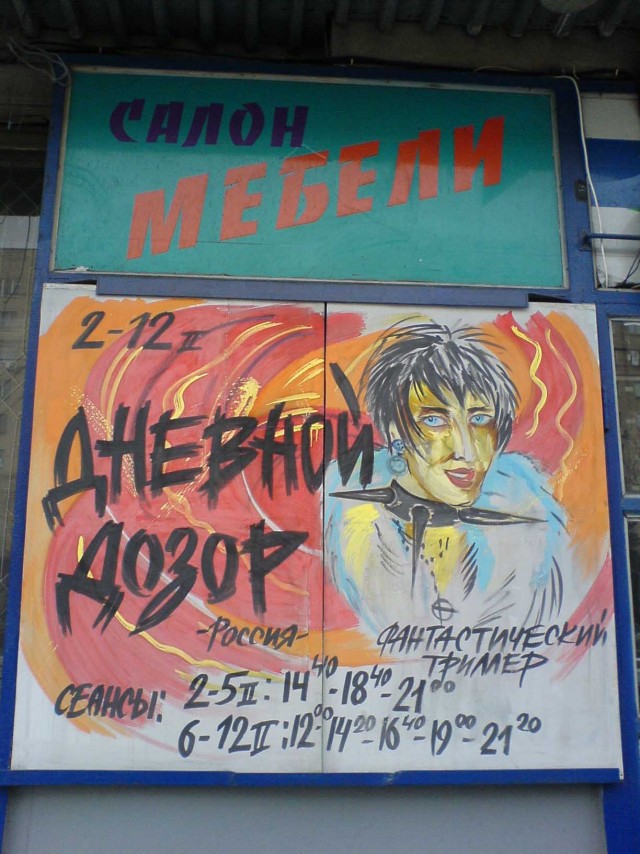 САЛОН
МЕБЕЛИ
2-12 II
ДНЕВНОЙ
ДОЗОР
-РОССИЯ-
ФАНТАСТИЧЕСКИЙ
ТРИЛЛЕР
СЕАНСЫ: 2-5 II: 14⁴⁰-18⁴⁰-21⁰⁰
6-12 II: 12⁰⁰-14²⁰-16⁴⁰-19⁰⁰-21²⁰